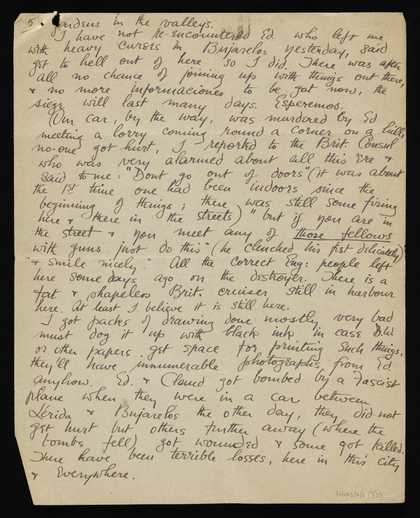 5. gardens in the valleys.
I have not re-encountered Ed who left me
with heavy curses in Bujarelos yesterday, said
get to hell out of here so I did. There was after
all no chance of joining up with things out there,
& no more informaciones to be got now, the
siege will last many days. Esperemos.
Our car, by the way, was murdered by Ed
meeting a lorry coming round a corner on a hill,
no-one got hurt, I reported to the Brit. Consul
who was very alarmed about all this ere &
said to me: "Dont go out of doors (it was about
the 1st time one had been indoors since the
beginning of things; there was still some firing
here & there in the streets)" but if you are in
the street & you meet any of those fellows
with guns just do this" (he clenched his fist delicately)
& smile nicely" All the correct Eng: people left
here some days ago on the destroyer. There is a
fat & shapeless Brit. cruiser still in harbour
here. At least I believe it is still here.
I got packs of drawing done mostly very bad
must dog it up with black ink in case
or other papers get space for printing such things,
they'll have innumerable photographs from Ed
anyhow. Ed. & Claud got bombed by a Fascist
plane when they were in a car between
Lerida & Bujarelos the other day, they did not
get hurt but others further away (where the
bombs fell) got wounded & some got killed.
There have been terrible losses, here in this city
& everywhere.